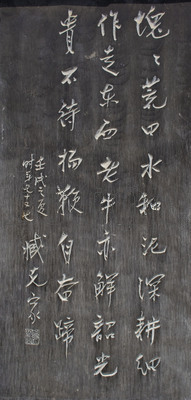 塊々荒田水和泥深耕細
作走東西老牛亦解韶光
貴不待揚鞭自奮蹄
壬戌之夏
時年七十又七
臧克家